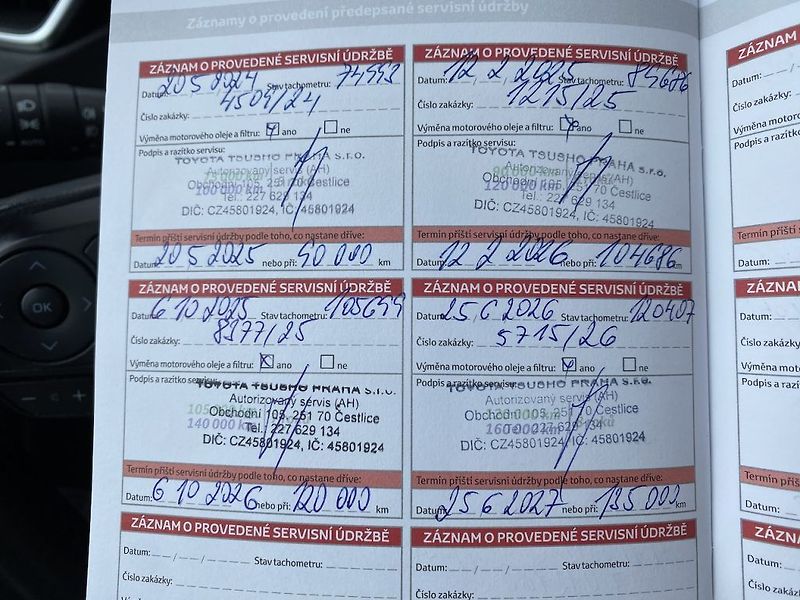 Záznamy o provedení předepsané servisní údržby
ZÁZNAM O PROVEDENÉ SERVISNÍ ÚDRŽBĚ
Datum: 20 5 2024 Stav tachometru: 74993
Číslo zakázky: 4504/24
Výměna motorového oleje a filtru: ano ne
Podpis a razítko servisu:
TOYOTA TSUSHO PRAHA s.r.o.
Autorizovaný servis (AH)
Obchodní 105, 251 70 Čestlice
100 000 km
Tel.: 227 629 134
DIČ: CZ45801924, IČ: 45801924
Termín příští servisní údržby podle toho, co nastane dříve:
Datum: 20 5 2025 nebo při: 90 000 km
ZÁZNAM O PROVEDENÉ SERVISNÍ ÚDRŽBĚ
Datum: 12 2 2025 Stav tachometru: 84686
Číslo zakázky: 1215/25
Výměna motorového oleje a filtru: ano ne
Podpis a razítko servisu:
TOYOTA TSUSHO PRAHA s.r.o.
90 000 km
Autorizovaný servis (AH)
Obchodní 105, 251 70 Čestlice
120 000 km
Tel.: 227 629 134
DIČ: CZ45801924, IČ: 45801924
Termín příští servisní údržby podle toho, co nastane dříve:
Datum: 12 2 2026 nebo při: 104686 km
ZÁZNAM O PROVEDENÉ SERVISNÍ ÚDRŽBĚ
Datum: 6 10 2025 Stav tachometru: 105699
Číslo zakázky: 8977/25
Výměna motorového oleje a filtru: ano ne
Podpis a razítko servisu:
TOYOTA TSUSHO PRAHA s.r.o.
Autorizovaný servis (AH)
Obchodní 105, 251 70 Čestlice
140 000 km
Tel.: 227 629 134
DIČ: CZ45801924, IČ: 45801924
Termín příští servisní údržby podle toho, co nastane dříve:
Datum: 6 10 2026 nebo při: 120 000 km
ZÁZNAM O PROVEDENÉ SERVISNÍ ÚDRŽBĚ
Datum: 25 6 2026 Stav tachometru: 120407
Číslo zakázky: 5715/26
Výměna motorového oleje a filtru: ano ne
Podpis a razítko servisu:
TOYOTA TSUSHO PRAHA s.r.o.
Autorizovaný servis (AH)
Obchodní 105, 251 70 Čestlice
160 000 km
Tel.: 227 629 134
DIČ: CZ45801924, IČ: 45801924
Termín příští servisní údržby podle toho, co nastane dříve:
Datum: 25 6 2027 nebo při: 135 000 km
ZÁZNAM O PROVEDENÉ SERVISNÍ ÚDRŽBĚ
Datum: Stav tachometru:
Číslo zakázky:
ZÁZNAM O PROVEDENÉ SERVISNÍ ÚDRŽBĚ
Datum: Stav tachometru:
Číslo zakázky:
ZÁZNAM
Datum:
Číslo zakázky:
Výměna motorové
Podpis a razítko
Termín příští servisní
Datum:
ZÁZNAM
Datum:
Číslo zakázky:
Výměna motoro
Podpis a razítko
Termín příští servis
Datum:
ZÁZN
Datum:
Číslo
OK